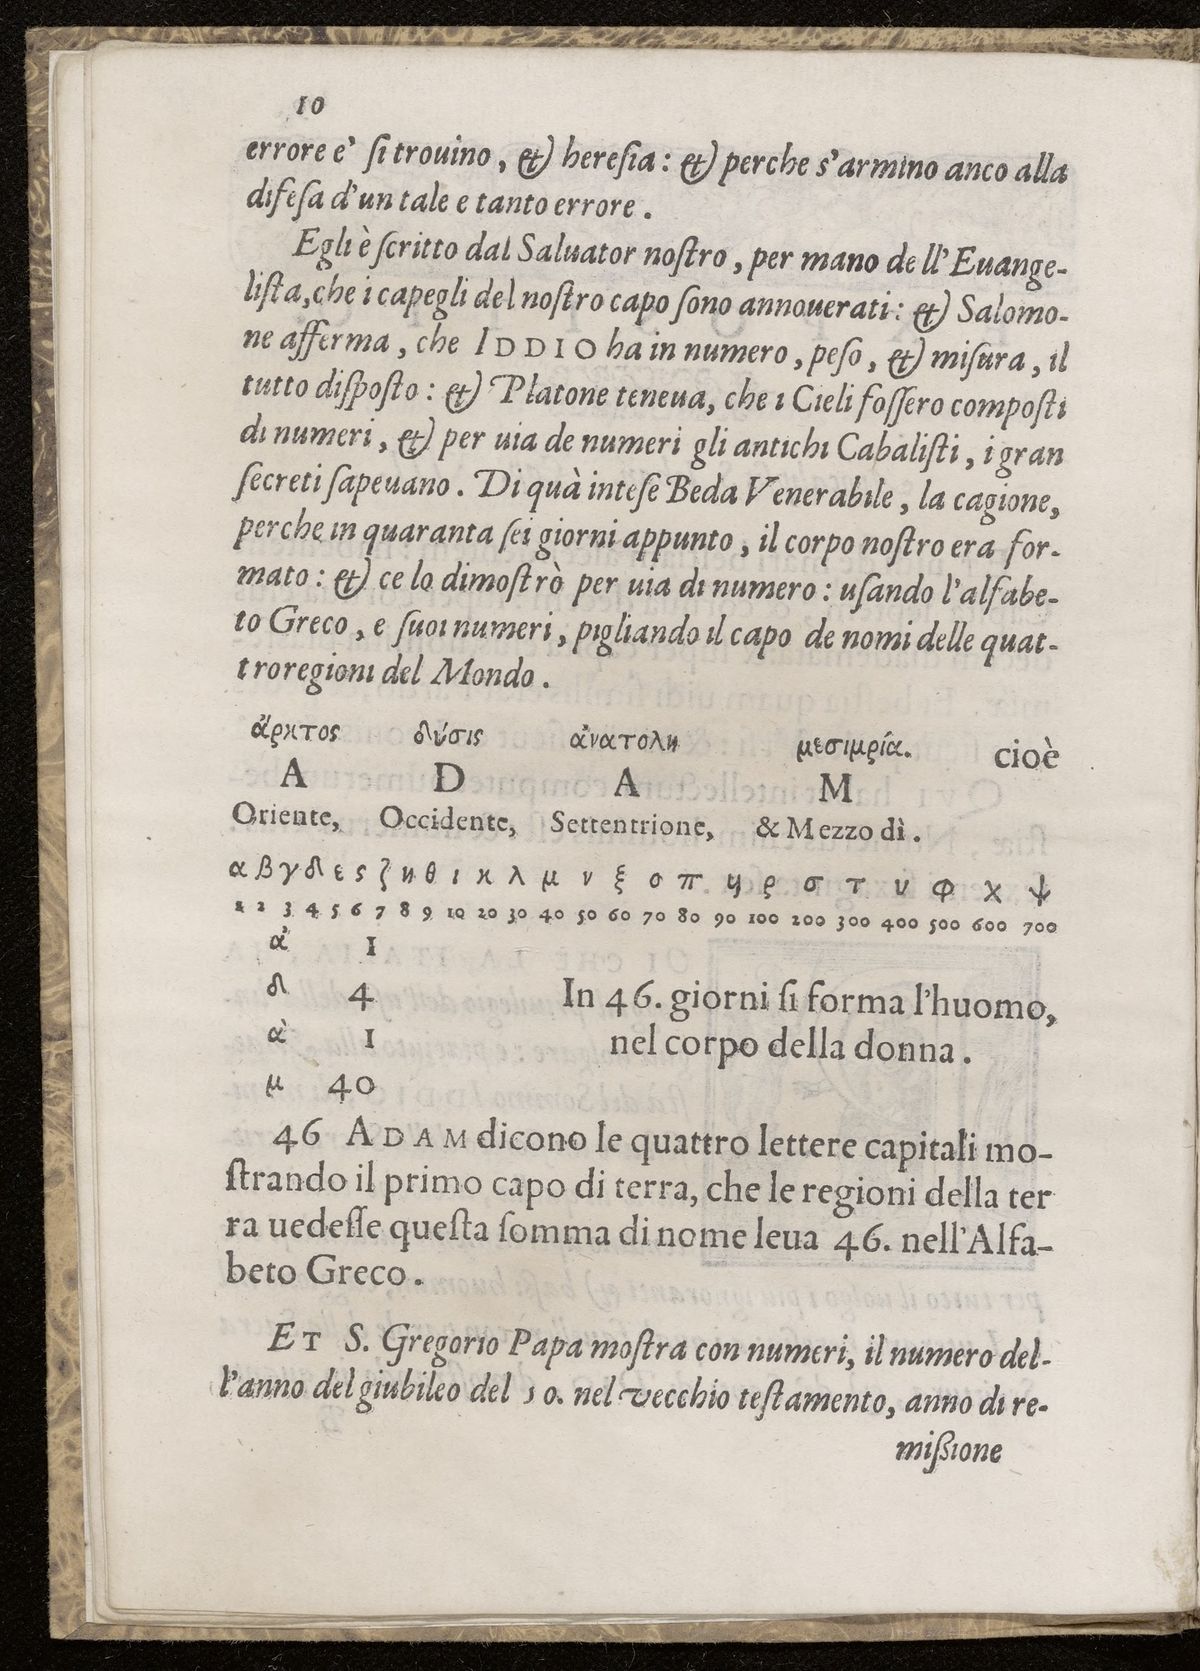 10
errore e' ſi trouino, & hereſia: & perche s'armino anco alla
difeſa d'un tale e tanto errore.
Egli è ſcritto dal Saluator noſtro, per mano dell'Euange-
liſta, che i capegli del noſtro capo ſono annouerati: & Salomo-
ne afferma, che IDDIO ha in numero, peſo, & miſura, il
tutto diſpoſto: & Platone teneua, che i Cieli foſſero compoſti
di numeri, & per uia de numeri gli antichi Cabaliſti, i gran
ſecreti ſapeuano. Di quà inteſe Beda Venerabile, la cagione,
perche in quaranta ſei giorni appunto, il corpo noſtro era for-
mato: & ce lo dimoſtrò per uia di numero: uſando l'alfabe-
to Greco, e ſuoi numeri, pigliando il capo de nomi delle quat-
troregioni del Mondo.
ἄρκτος δύσις ἀνατολη μεσιμρία. cioè
A D A M
Oriente, Occidente, Settentrione, & Mezzo dì.
α β γ δ ε ς ζ η θ ι κ λ μ ν ξ ο π ϥ ρ σ τ υ φ χ ψ
1 2 3 4 5 6 7 8 9 10 20 30 40 50 60 70 80 90 100 200 300 400 500 600 700
ἀ 1
δ 4 In 46. giorni ſi forma l'huomo,
ὰ 1 nel corpo della donna.
μ 40
46 ADAM dicono le quattro lettere capitali mo-
ſtrando il primo capo di terra, che le regioni della ter
ra uedeſſe queſta ſomma di nome leua 46. nell'Alfa-
beto Greco.
ET S. Gregorio Papa moſtra con numeri, il numero del-
l'anno del giubileo del 50. nel vecchio teſtamento, anno di re-
miſsione